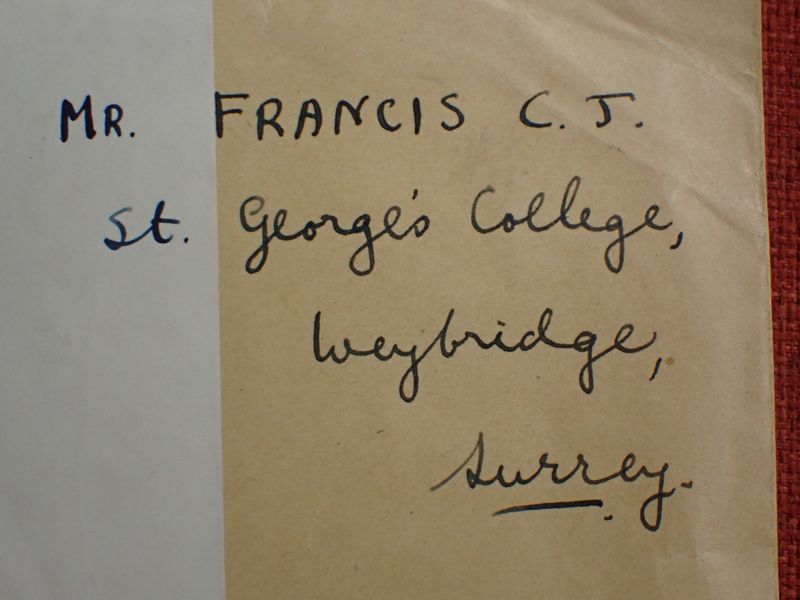 MR. FRANCIS C. J.
St. George's College,
Weybridge,
Surrey.